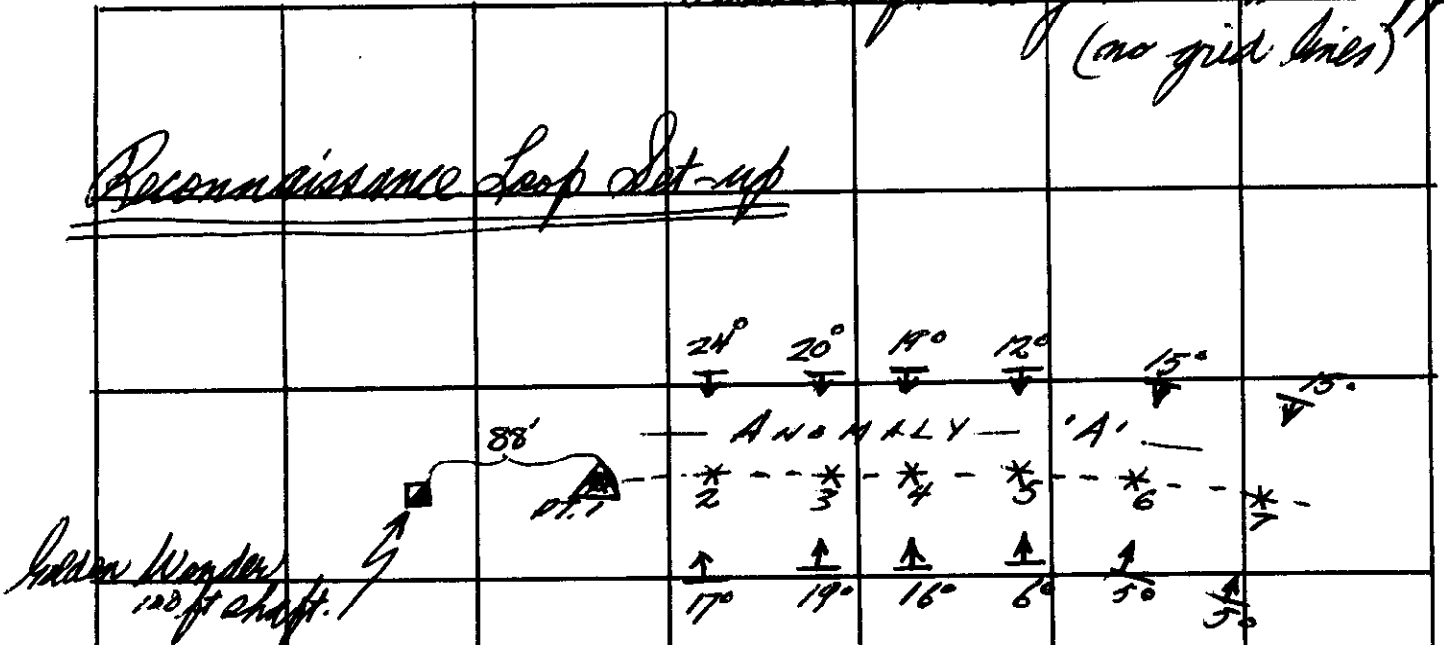 (no grid lines)
Reconnaissance Loop Set-up
24° 20° 19° 12° 15° 15°
88' — ANOMALY — 'A' —
PT. 1 2 3 4 5 6 7
Golden Wonder
120 ft shaft.
17° 19° 16° 6° 5° 5°